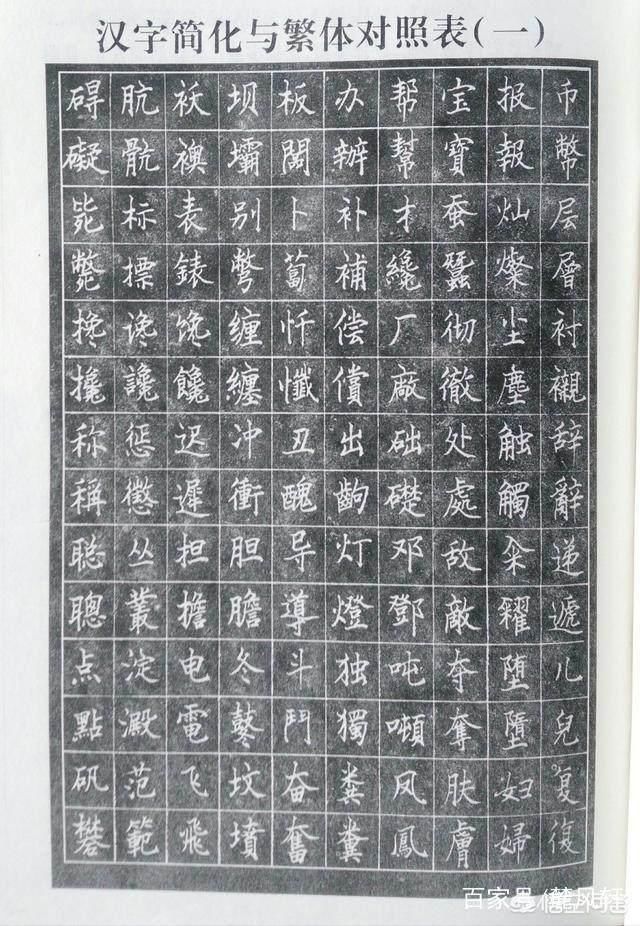 汉字简化与繁体对照表(一)
碍肮袄坝板办帮宝报币
礙骯襖壩闆辦幫寶報幣
毙标表别卜补才蚕灿层
斃標錶彆蔔補纔蠶燦層
搀谗馋缠忏偿厂彻尘衬
攙讒饞纏懺償廠徹塵襯
称惩迟冲丑出础处触辞
稱懲遲衝醜齣礎處觸辭
聪丛担胆导灯邓敌籴递
聰叢擔膽導燈鄧敵糴遞
点淀电冬斗独吨夺堕儿
點澱電鼕鬥獨噸奪墮兒
矾范飞坟奋粪凤肤妇复
礬範飛墳奮糞鳳膚婦復
百家号